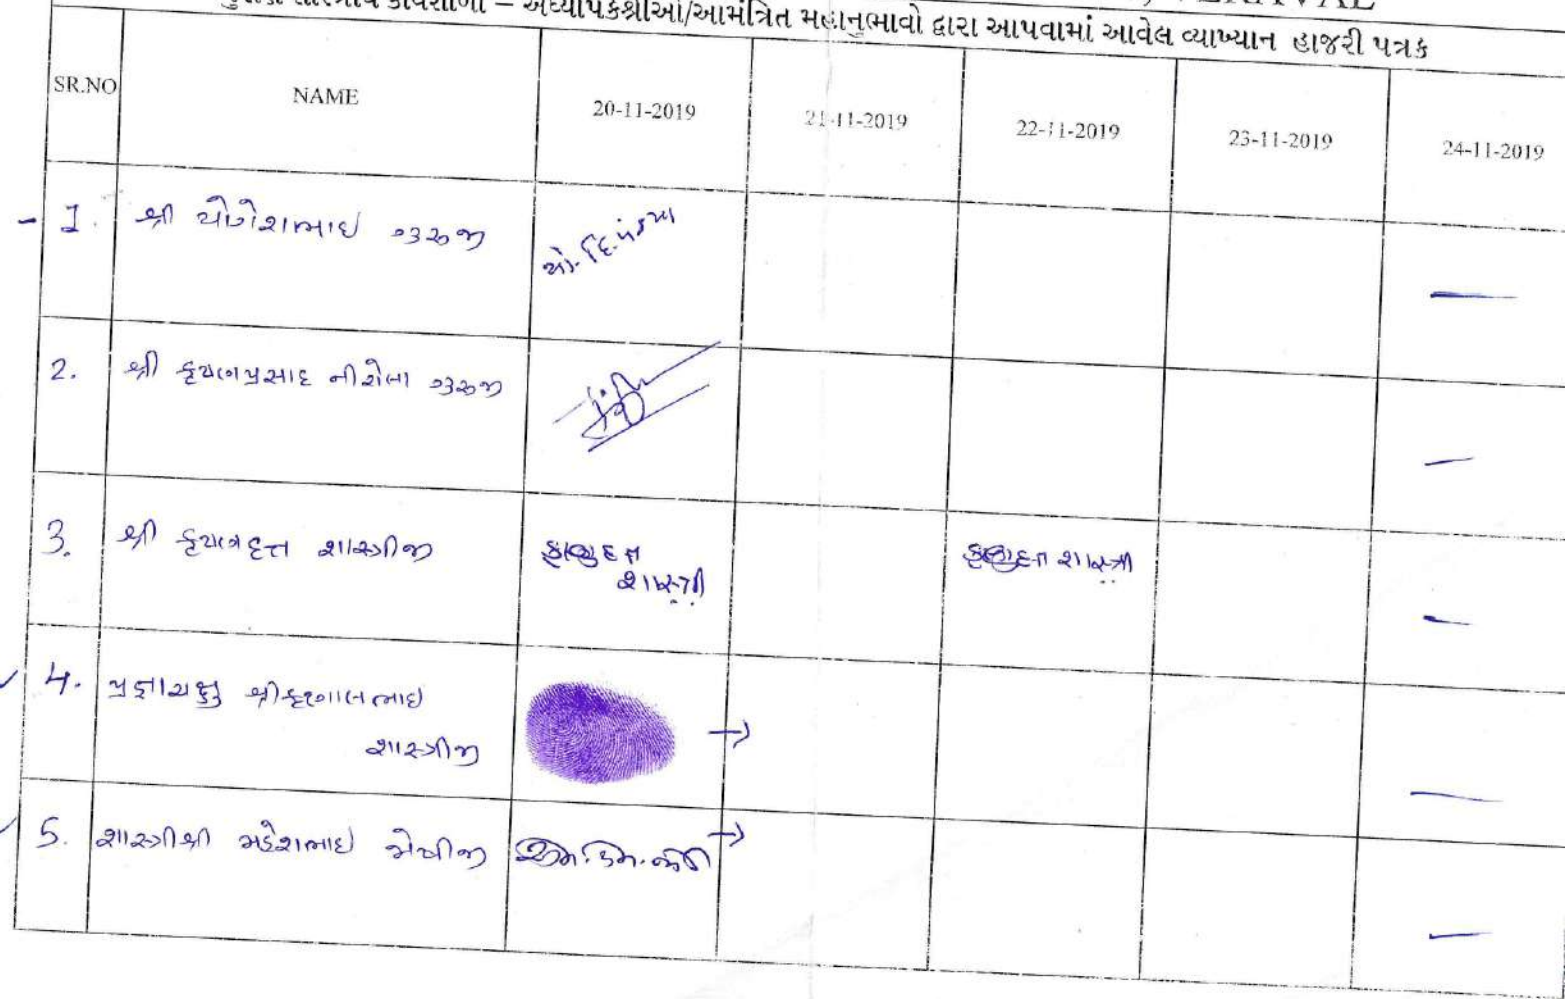 શાસ્ત્રીય કાર્યશાળા – અધ્યાપકશ્રીઓ/આમંત્રિત મહાનુભાવો દ્વારા આપવામાં આવેલ વ્યાખ્યાન હાજરી પત્રક
SR.NO NAME 20-11-2019 21-11-2019 22-11-2019 23-11-2019 24-11-2019
1. શ્રી યોગેશભાઇ ગુરુજી યો. દિ. પંડ્યા —
2. શ્રી કૃષ્ણપ્રસાદ નીરોલા ગુરુજી —
3. શ્રી કૃષ્ણદત્ત શાસ્ત્રીજી કૃષ્ણદત્ત શાસ્ત્રી કૃષ્ણદત્ત શાસ્ત્રી —
4. પ્રજ્ઞાચક્ષુ શ્રી ભાઇ → —
શાસ્ત્રીજી
5. શાસ્ત્રીશ્રી મહેશભાઇ જોષીજી → —